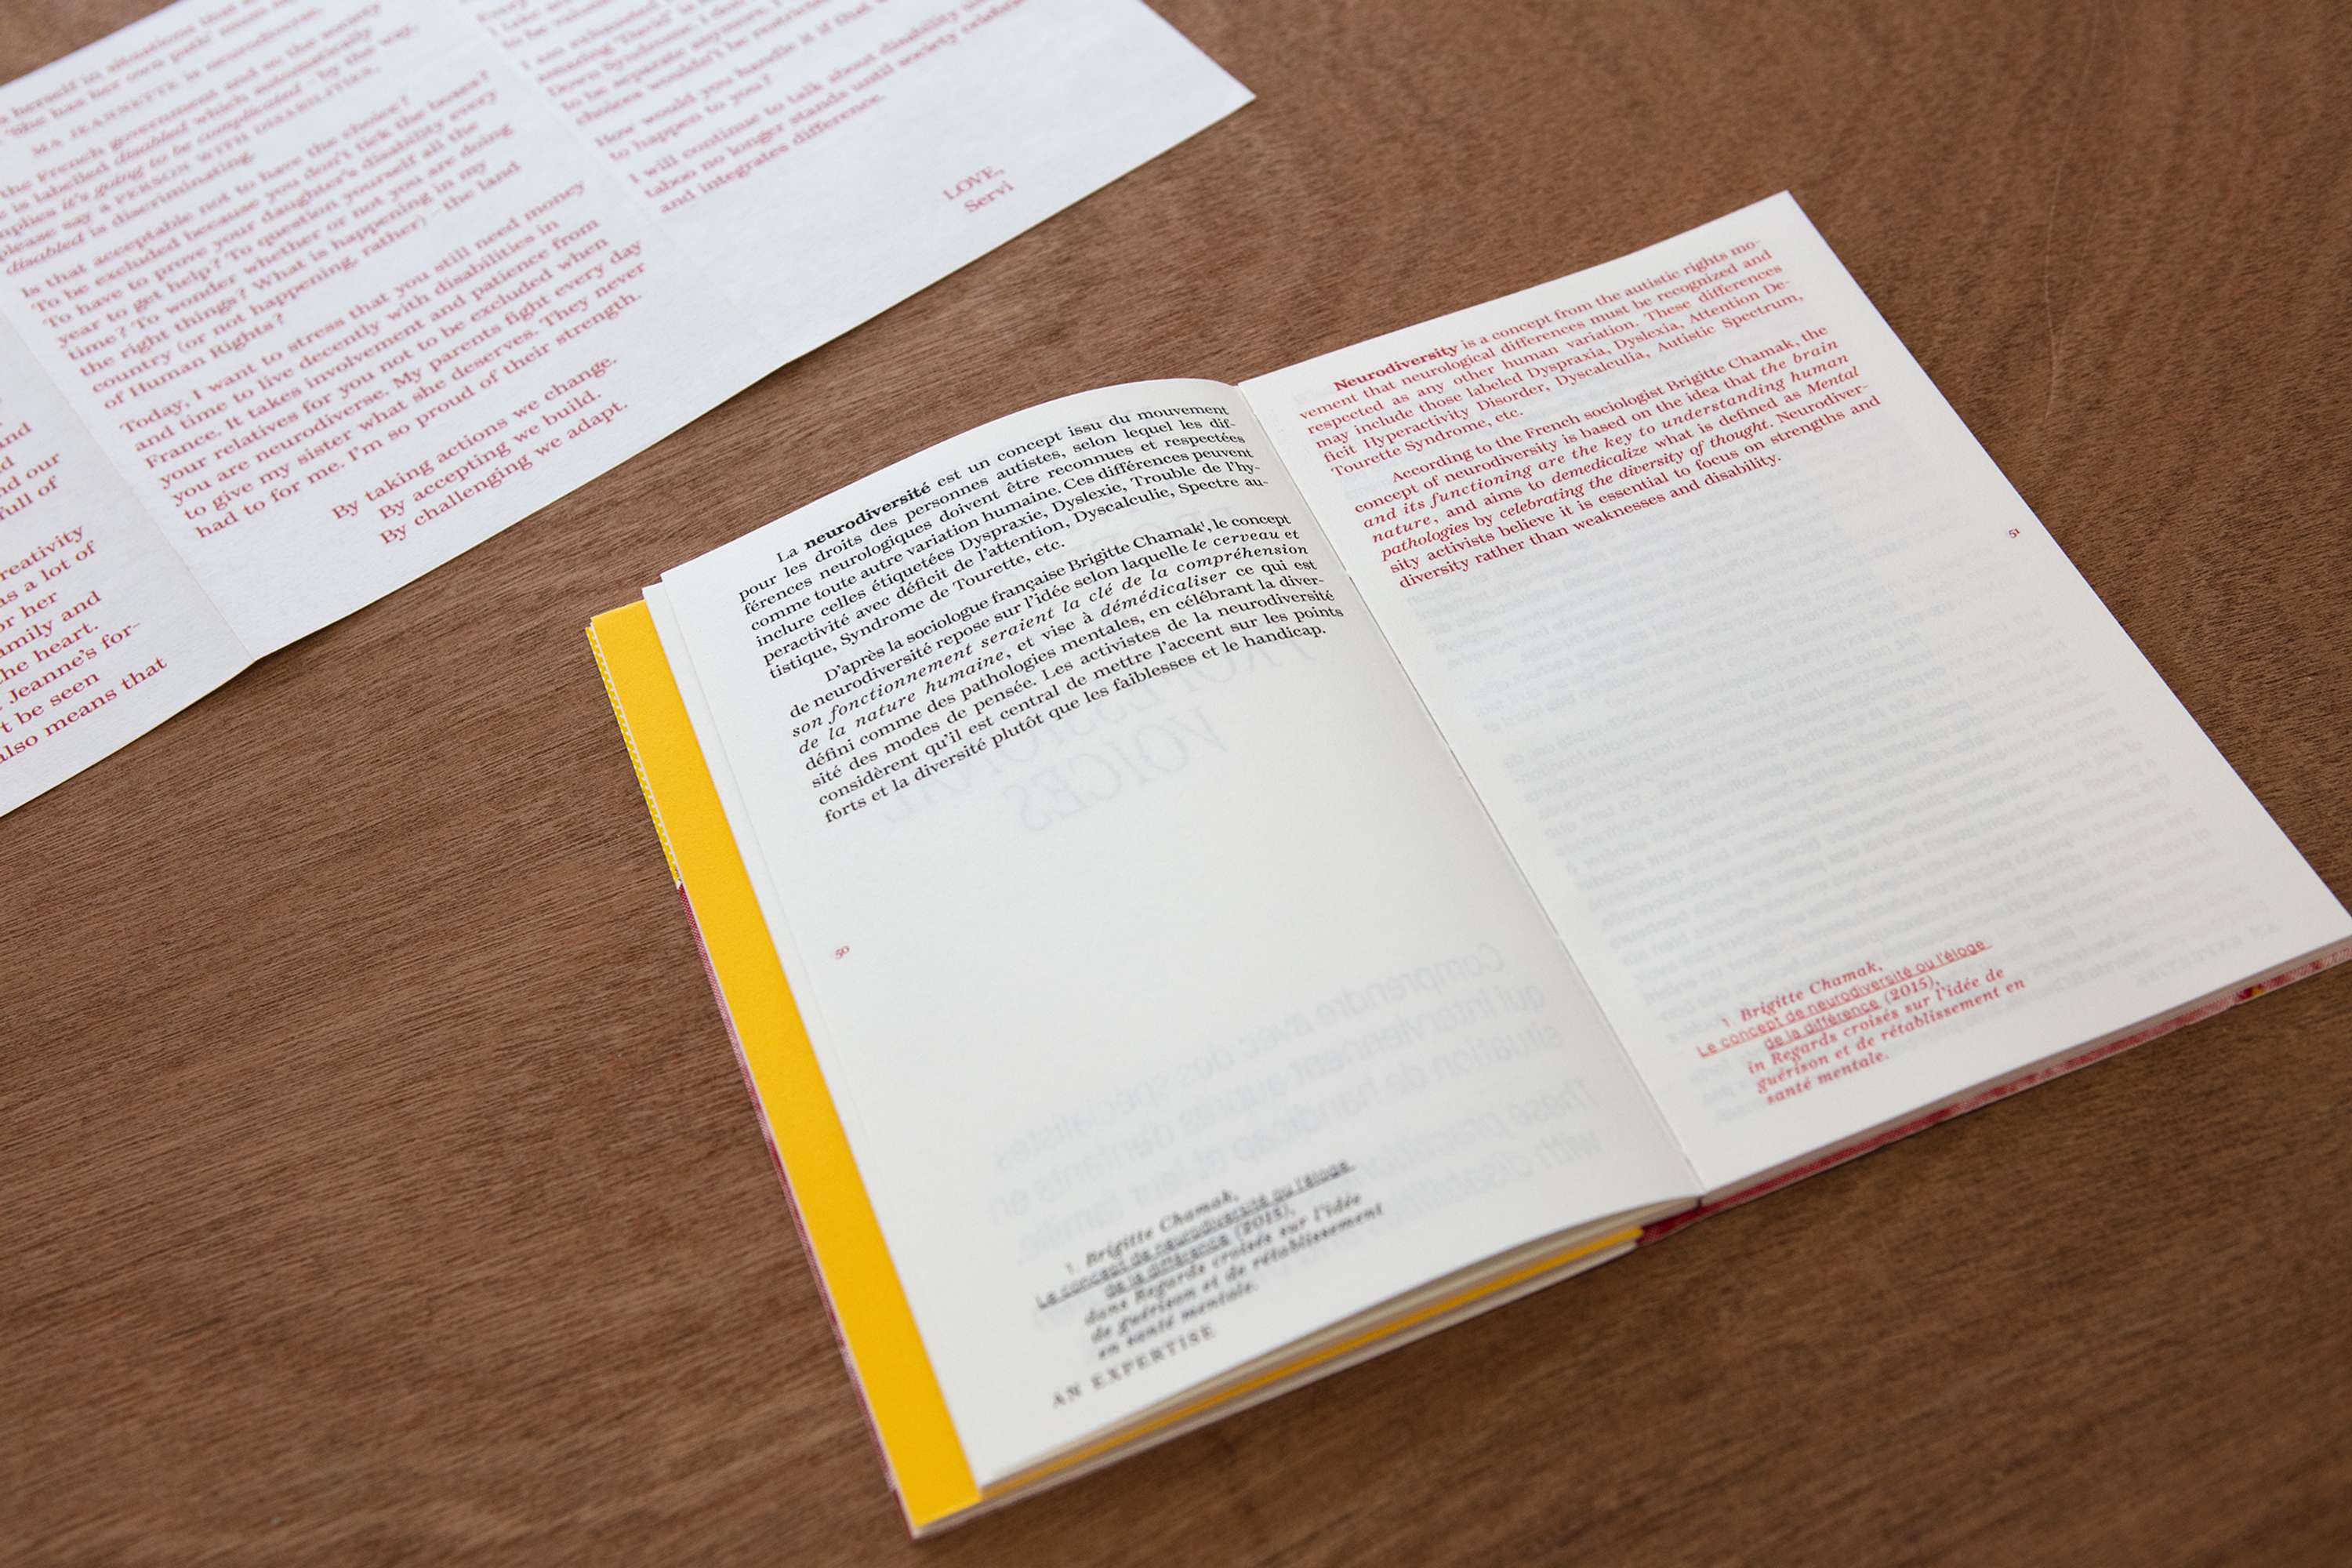 herself in situations that
She has her own path
MA JEANNETTE is neurodiverse.
the French government and so the society
is labelled disabled which automatically
implies it's going to be complicated – by the way,
please say A PERSON WITH DISABILITIES,
disabled is discriminating.
Is that acceptable not to have the choice?
To be excluded because you don't tick the boxes?
To have to prove your daughter's disability every
year to get help? To question yourself all the
time? To wonder whether or not you are doing
the right things? What is happening in my
country (or not happening, rather) – the land
of Human Rights?
Today, I want to stress that you still need money
and time to live decently with disabilities in
France. It takes involvement and patience from
your relatives for you not to be excluded when
you are neurodiverse. My parents fight every day
to give my sister what she deserves. They never
had to for me. I'm so proud of their strength.
By taking actions we change.
By accepting we build.
By challenging we adapt.
and
nd our
full of
reativity
as a lot of
or her
amily and
he heart.
Jeanne's for-
t be seen
also means that
I am exhausted
Down Syndrome. I
to be separate
choices wouldn't be
How would you handle it if that
to happen to you?
I will continue to talk about disability
taboo no longer stands until society
and integrates difference.
LOVE,
Servi
La neurodiversité est un concept issu du mouvement
pour les droits des personnes autistes, selon lequel les dif-
férences neurologiques doivent être reconnues et respectées
comme toute autre variation humaine. Ces différences peuvent
inclure celles étiquetées Dyspraxie, Dyslexie, Trouble de l'hy-
peractivité avec déficit de l'attention, Dyscalculie, Spectre au-
tistique, Syndrome de Tourette, etc.
D'après la sociologue française Brigitte Chamak¹, le concept
de neurodiversité repose sur l'idée selon laquelle le cerveau et
son fonctionnement seraient la clé de la compréhension
de la nature humaine, et vise à démédicaliser ce qui est
défini comme des pathologies mentales, en célébrant la diver-
sité des modes de pensée. Les activistes de la neurodiversité
considèrent qu'il est central de mettre l'accent sur les points
forts et la diversité plutôt que les faiblesses et le handicap.
50
1. Brigitte Chamak,
Le concept de neurodiversité ou l'éloge
de la différence (2015),
dans Regards croisés sur l'idée
de guérison et de rétablissement
en santé mentale.
AN EXPERTISE
Neurodiversity is a concept from the autistic rights mo-
vement that neurological differences must be recognized and
respected as any other human variation. These differences
may include those labeled Dyspraxia, Dyslexia, Attention De-
ficit Hyperactivity Disorder, Dyscalculia, Autistic Spectrum,
Tourette Syndrome, etc.
According to the French sociologist Brigitte Chamak, the
concept of neurodiversity is based on the idea that the brain
and its functioning are the key to understanding human
nature, and aims to demedicalize what is defined as Mental
pathologies by celebrating the diversity of thought. Neurodiver-
sity activists believe it is essential to focus on strengths and
diversity rather than weaknesses and disability.
51
1. Brigitte Chamak,
Le concept de neurodiversité ou l'éloge
de la différence (2015),
in Regards croisés sur l'idée de
guérison et de rétablissement en
santé mentale.